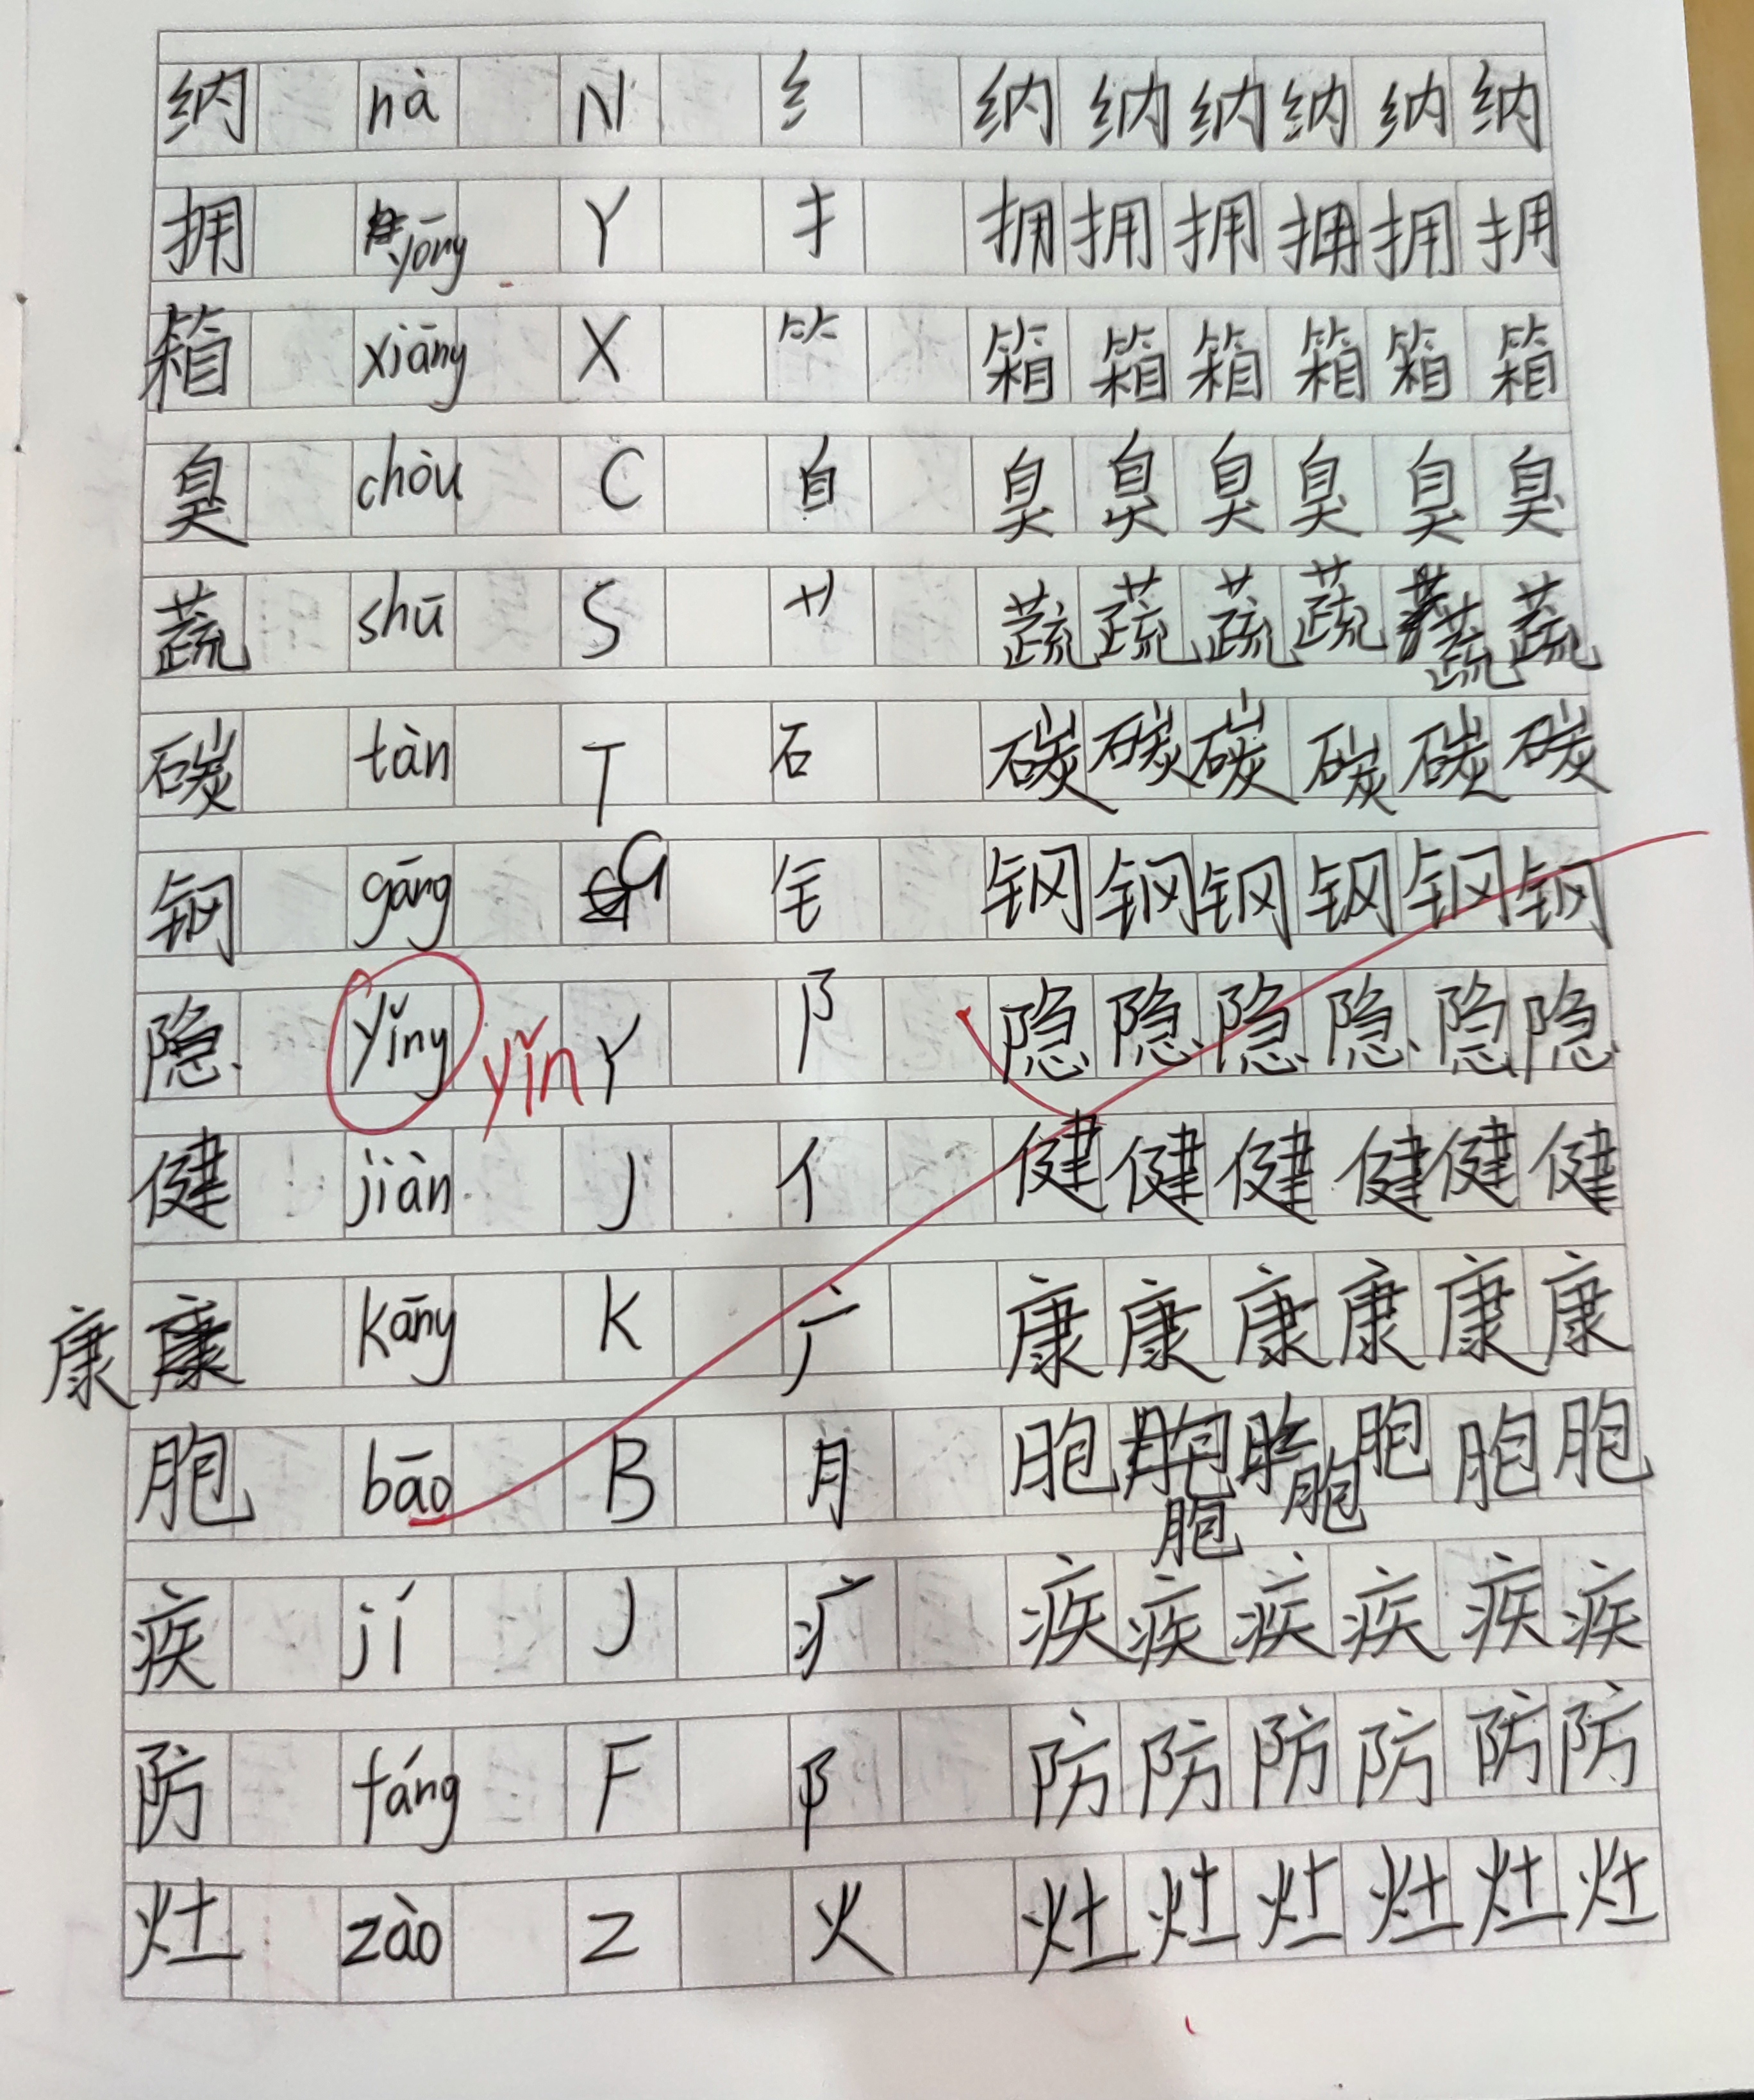 纳 nà N 纟 纳 纳 纳 纳 纳 纳
拥 yōng Y 扌 拥 拥 拥 拥 拥 拥
箱 xiāng X ⺮ 箱 箱 箱 箱 箱 箱
臭 chòu C 自 臭 臭 臭 臭 臭 臭
蔬 shū S 艹 蔬 蔬 蔬 蔬 蔬 蔬
碳 tàn T 石 碳 碳 碳 碳 碳 碳
钢 gāng G 钅 钢 钢 钢 钢 钢 钢
隐 yǐng yǐn Y 阝 隐 隐 隐 隐 隐 隐
健 jiàn J 亻 健 健 健 健 健 健
康 康 kāng K 广 康 康 康 康 康 康
胞 bāo B 月 胞 胞 胞 胞 胞 胞
疾 jí J 疒 疾 疾 疾 疾 疾 疾
防 fáng F 阝 防 防 防 防 防 防
灶 zào Z 火 灶 灶 灶 灶 灶 灶